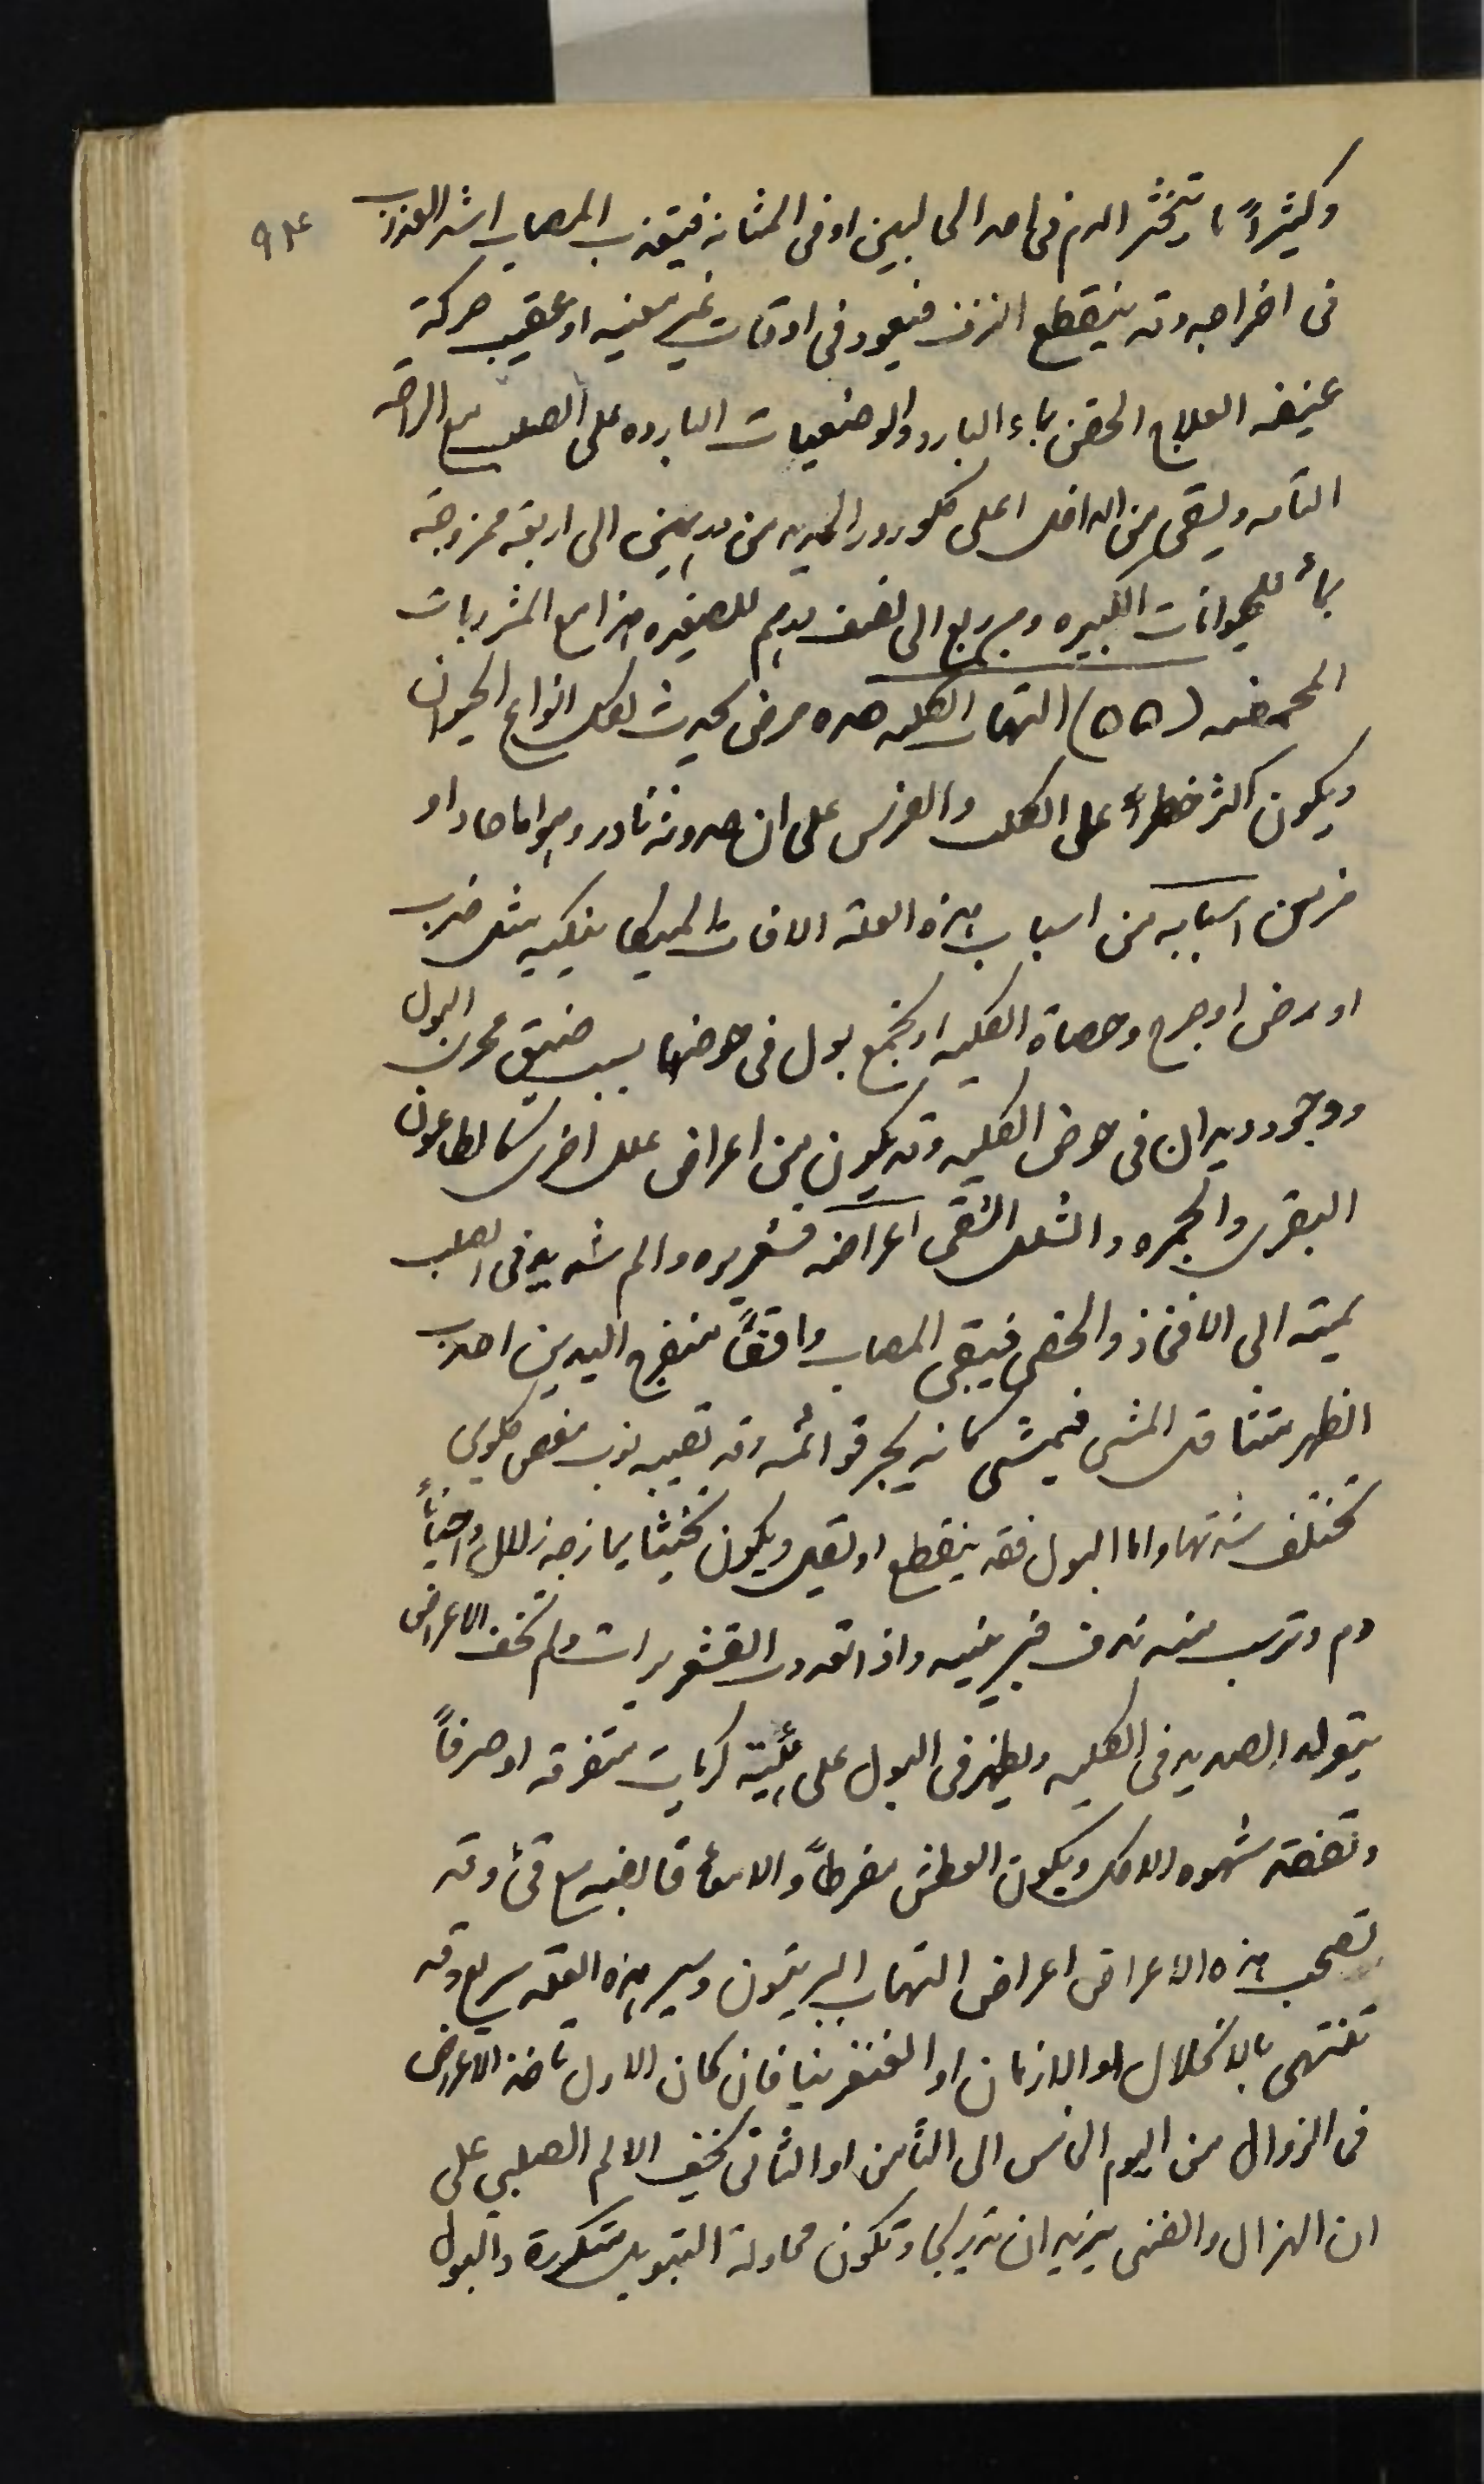 ٩٤
وكثيراً ما يتخثر الدم في احد الحالبين او في المثانه فيتعذب المصاب اشد العذاب
في اخراجه وقد ينقطع النزف فيعود في اوقات غير معينه او عقيب حركة
عنيفه العلاج الحقن بماء البارد والوضعيات البارده على الصلب مع الراحه
التامه ويسقى من الداخل اعلى كلورور الحديد من درهمين الى اربعه ممزوجة
بماء للحيوانات الكبيره ومن ربع الى نصف درهم للصغيره هذا مع المشروبات
المحمضه (٥٥) التهاب الكليه هذه مرض يحدث لكل انواع الحيوان
ويكون اكثر خطراً على الكلب والفرس على ان حدوثه نادر وهو اما حاد او
مزمن اسبابه من اسباب هذه العلة الافات الميكانيكيه مثل ضرب
او رض او جرح وحصاة الكليه او تجمع بول في حوضها بسبب ضيق مجرى البول
ووجود ديدان في حوض الكليه وقد يكون من اعراض علل اخرى كالطاعون
البقري والجمره والشلل النقي اعراضه قشعريره والم شديد في الصلب
يمتد الى الافخاذ والخصى فيبقى المصاب واقفاً منفرج اليدين احدب
الظهر متثاقل المشي فيمشي كانه يجر قوائمه وقد تصيبه نوب مغص كلوي
تختلف شدتها واما البول فقد ينقطع او يقل ويكون تخيناً يمازجه زلال واحياناً
دم وترسب منه ندف فبرينيه واذا تعددت القشعريرات ولم تخف الاعراض
يتولد الصديد في الكليه ويظهر في البول على هيئة كريات متفرقه او صرفاً
وتفقد شهوه الاكل ويكون العطش مفرطاً والامعاء قابضه مع قئ وقد
تصحب هذه الاعراض اعراض التهاب البريتون وسير هذه العله سريع وقد
تنتهي بالانحلال او الازمان او الغنغرينا فان كان الاول تاخذ الاعراض
في الزوال من اليوم الخامس الى الثامن او الثاني تخف الالم الصلبي على
ان الهزال والضنى يزيدان تدريجا وتكون محاولة التبويل متكررة والبول